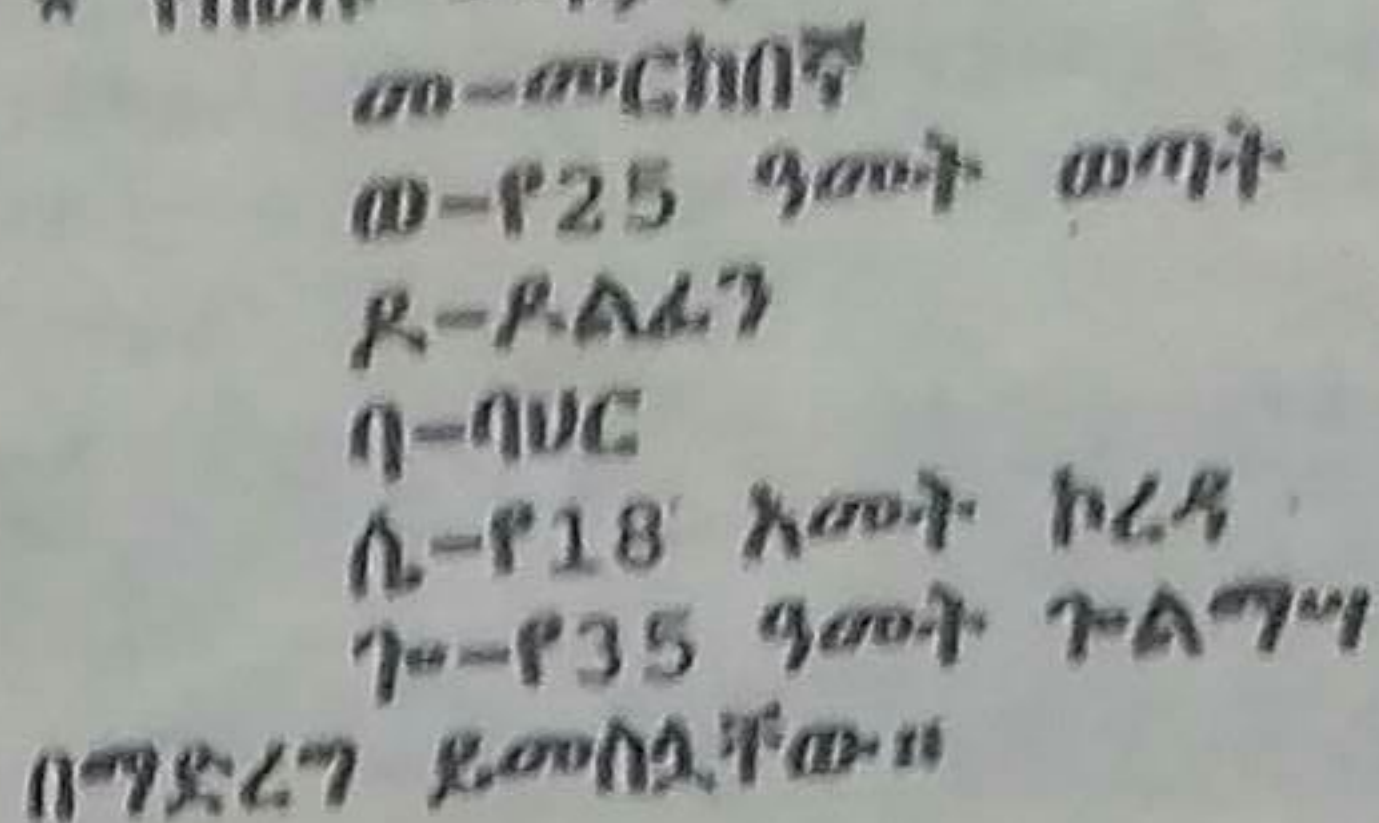 መ-መርከበኛ
ወ-የ25 ዓመት ወጣት
ዶ-ዶልፊን
ባ-ባህር
ሴ-የ18 አመት ኮረዳ
ጐ-የ35 ዓመት ጐልማሣ
በማድረግ ይመስሏቸው።